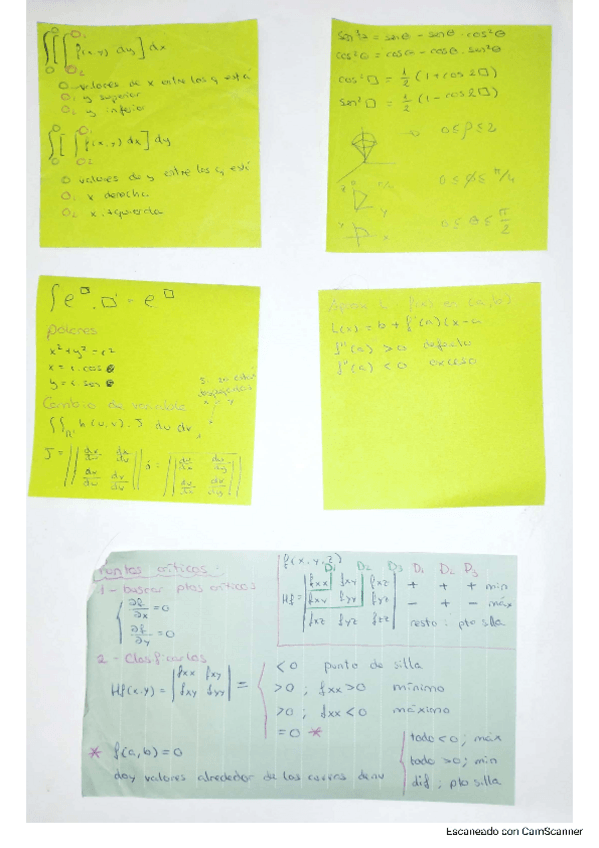 ∫[∫ f(x,y) dy] dx
O valores de x entre los q está
O₁ y superior
O₂ y inferior
∫[∫ f(x,y) dx] dy
O valores de y entre los q está
O₁ x derecha
O₂ x izquierda
sen³θ = senθ - senθ · cos²θ
cos³θ = cosθ - cosθ · sen²θ
cos²□ = 1/2 (1 + cos 2□)
sen²□ = 1/2 (1 - cos 2□)
0 ≤ ρ ≤ 2
0 ≤ φ ≤ π/4
0 ≤ θ ≤ π/2
∫ e^□ · □' = e^□
polares
x² + y² = r²
x = r · cos θ
y = r · sen θ
Cambio de variable
∫∫ h(u,v) · J du dv
J =
L(x) = b + f'(a)(x - a
f''(a) > 0 defecto
f''(a) < 0 exceso
Puntos críticos:
1 - buscar ptos críticos
∂f/∂x = 0
∂f/∂y = 0
2 - Clasificarlos
Hf(x,y) = | fxx fxy |
| fxy fyy | =
< 0 punto de silla
> 0 ; fxx > 0 mínimo
> 0 ; fxx < 0 máximo
= 0 *
f(x,y,z)
D₁ D₂ D₃ D₁ D₂ D₃
fxx fxy fxz + + + min
Hf = fxy fyy fyz - + - máx
fxz fyz fzz resto : pto silla
* f(a,b) = 0
doy valores alrededor de los
todo < 0 ; máx
todo > 0 ; min
dif ; pto silla
Escaneado con CamScanner